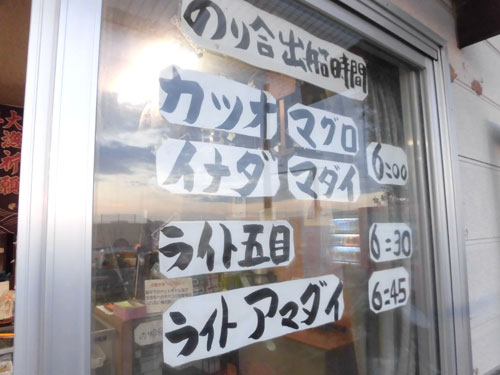 のり合出船時間
カツオ マグロ
イナダ マダイ 6:00
ライト五目 6:30
ライトアマダイ 6:45